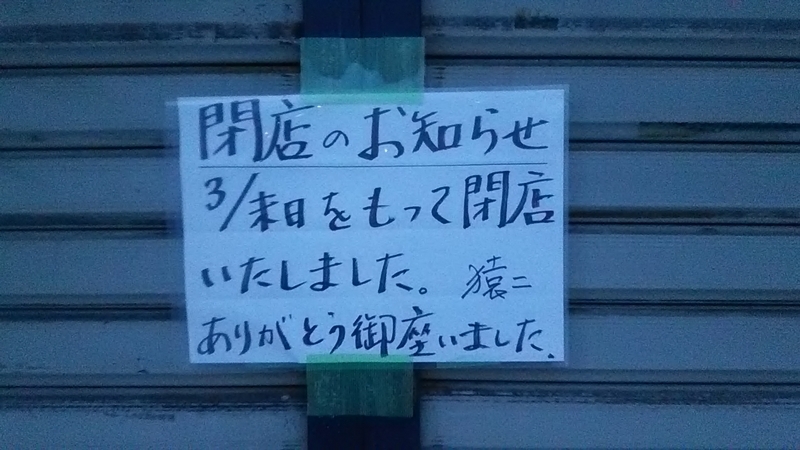 閉店のお知らせ
3/末日をもって閉店
いたしました。 猿二
ありがとう御座いました.